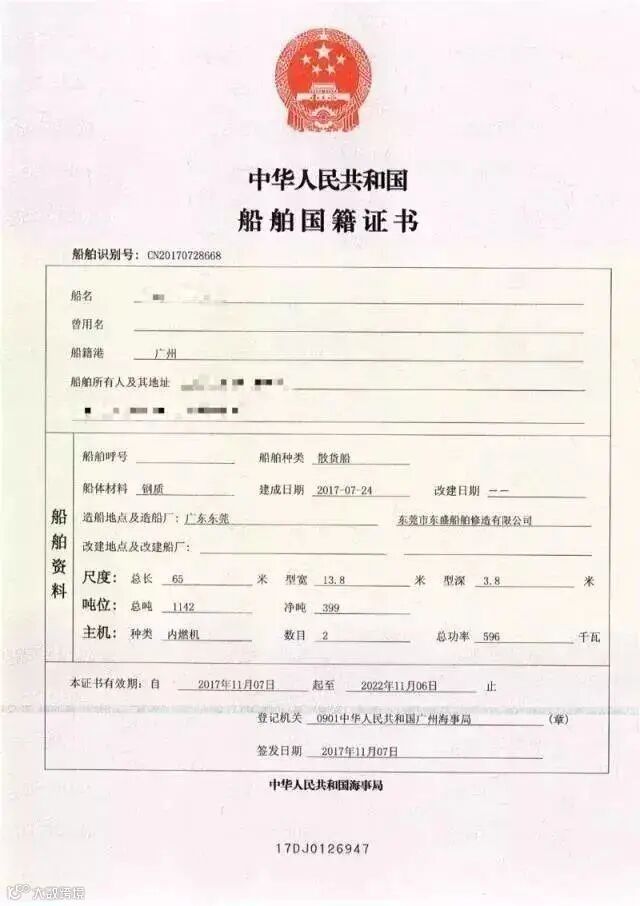 中华人民共和国
船舶国籍证书
船舶识别号：CN20170728668
船名
曾用名
船籍港 广州
船舶所有人及其地址
船舶呼号 船舶种类 散货船
船体材料 钢质 建成日期 2017-07-24 改建日期 --
造船地点及造船厂：广东东莞 东莞市东盛船舶修造有限公司
改建地点及改建船厂：
船舶资料
尺度： 总长 65 米 型宽 13.8 米 型深 3.8 米
吨位： 总吨 1142 净吨 399
主机： 种类 内燃机 数目 2 总功率 596 千瓦
本证书有效期：自 2017年11月07日 起至 2022年11月06日 止
登记机关 0901中华人民共和国广州海事局 (章)
签发日期 2017年11月07日
中华人民共和国海事局
17DJ0126947
大数跨境